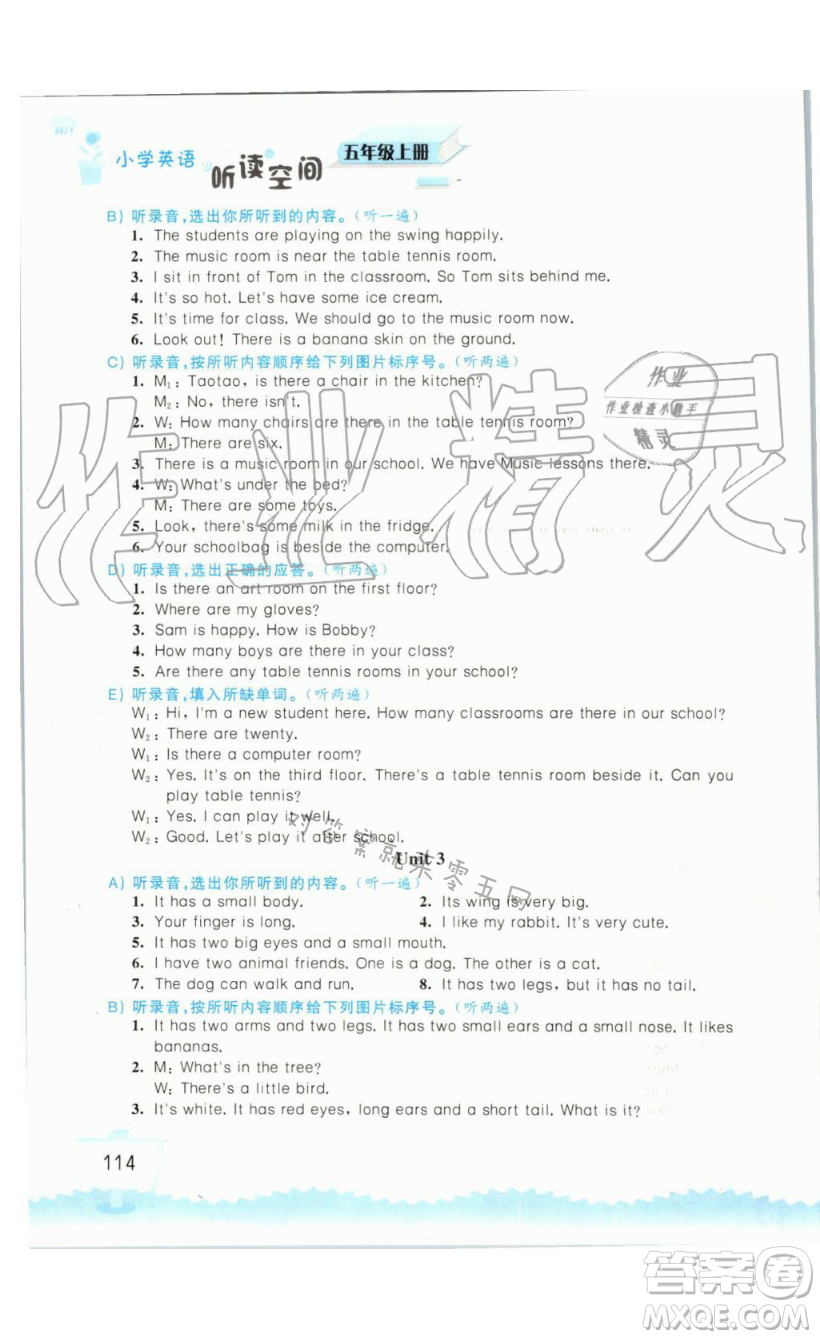 Hi!
小学英语 听读空间 五年级上册
B) 听录音,选出你所听到的内容。(听一遍)
1. The students are playing on the swing happily.
2. The music room is near the table tennis room.
3. I sit in front of Tom in the classroom. So Tom sits behind me.
4. It's so hot. Let's have some ice cream.
5. It's time for class. We should go to the music room now.
6. Look out! There is a banana skin on the ground.
C) 听录音,按所听内容顺序给下列图片标序号。(听两遍)
1. M₁: Taotao, is there a chair in the kitchen?
M₂: No, there isn't.
2. W: How many chairs are there in the table tennis room?
M: There are six.
3. There is a music room in our school. We have Music lessons there.
4. W: What's under the bed?
M: There are some toys.
5. Look, there's some milk in the fridge.
6. Your schoolbag is beside the computer.
D) 听录音,选出正确的应答。(听两遍)
1. Is there an art room on the first floor?
2. Where are my gloves?
3. Sam is happy. How is Bobby?
4. How many boys are there in your class?
5. Are there any table tennis rooms in your school?
E) 听录音,填入所缺单词。(听两遍)
W₁: Hi, I'm a new student here. How many classrooms are there in our school?
W₂: There are twenty.
W₁: Is there a computer room?
W₂: Yes. It's on the third floor. There's a table tennis room beside it. Can you
play table tennis?
W₁: Yes. I can play it well.
W₂: Good. Let's play it after school.
Unit 3
A) 听录音,选出你所听到的内容。(听一遍)
1. It has a small body. 2. Its wing is very big.
3. Your finger is long. 4. I like my rabbit. It's very cute.
5. It has two big eyes and a small mouth.
6. I have two animal friends. One is a dog. The other is a cat.
7. The dog can walk and run. 8. It has two legs, but it has no tail.
B) 听录音,按所听内容顺序给下列图片标序号。(听两遍)
1. It has two arms and two legs. It has two small ears and a small nose. It likes
bananas.
2. M: What's in the tree?
W: There's a little bird.
3. It's white. It has red eyes, long ears and a short tail. What is it?
114
作业精灵
作业
作业检查小助手
精灵
对答案就来零五网
答案圈
MXQE.COM